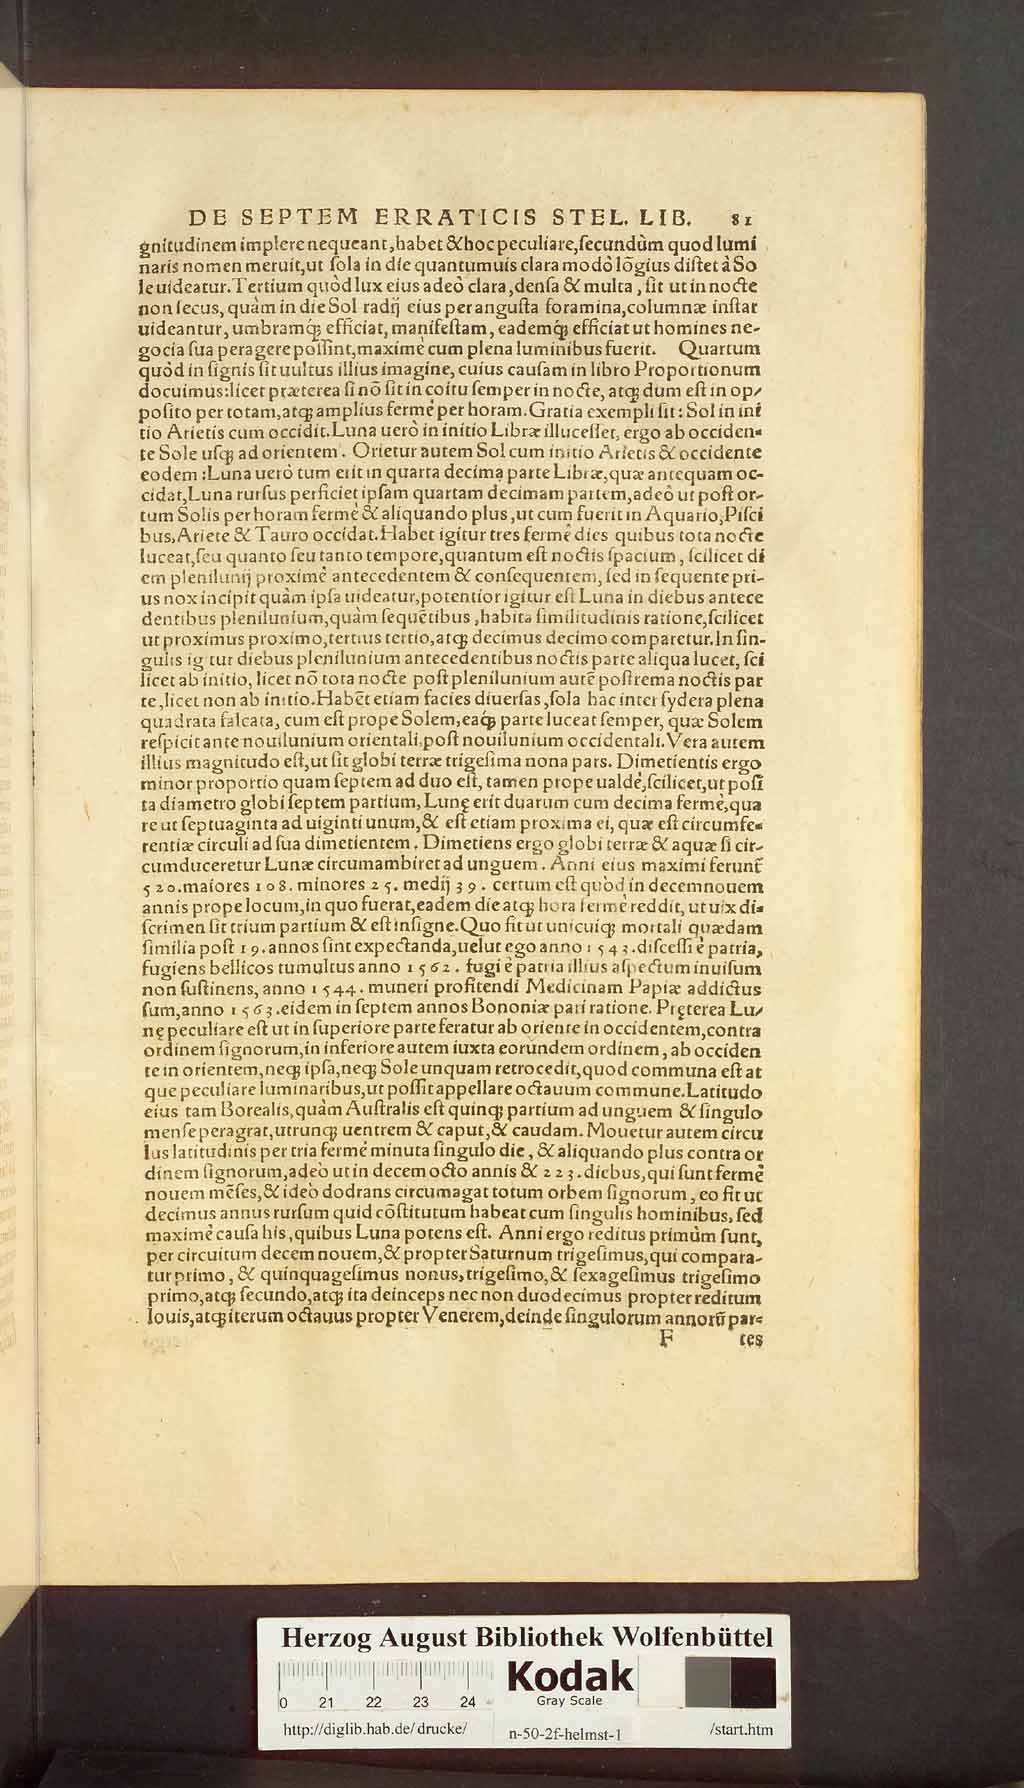 DE SEPTEM ERRATICIS STEL. LIB. 81
gnitudinem implere nequeant, habet & hoc peculiare, ſecundùm quod lumi
naris nomen meruit, ut ſola in die quantumuis clara modò lōgius diſtet à So
le uideatur. Tertium quòd lux eius adeò clara, denſa & multa, ſit ut in nocte
non ſecus, quàm in die Sol radij eius per anguſta foramina, columnæ inſtar
uideantur, umbramq́; efficiat, manifeſtam, eademq́; efficiat ut homines ne-
gocia ſua peragere poſſint, maximè cum plena luminibus fuerit. Quartum
quòd in ſignis ſit uultus illius imagine, cuius cauſam in libro Proportionum
docuimus: licet præterea ſi nō ſit in coitu ſemper in nocte, atq; dum eſt in op-
poſito per totam, atq; amplius fermè per horam. Gratia exempli ſit: Sol in ini
tio Arietis cum occidit. Luna uerò in initio Libræ illuceſſet, ergo ab occiden-
te Sole uſq; ad orientem. Orietur autem Sol cum initio Arietis & occidente
eodem: Luna uerò tum erit in quarta decima parte Libræ, quæ antequam oc-
cidat, Luna rurſus perficiet ipſam quartam decimam partem, adeò ut poſt or-
tum Solis per horam fermè & aliquando plus, ut cum fuerit in Aquario, Piſci
bus, Ariete & Tauro occidat. Habet igitur tres fermè dies quibus tota nocte
luceat, ſeu quanto ſeu tanto tempore, quantum eſt noctis ſpacium, ſcilicet di
em plenilunij proximè antecedentem & conſequentem, ſed in ſequente pri-
us nox incipit quàm ipſa uideatur, potentior igitur eſt Luna in diebus antece
dentibus plenilunium, quàm ſequētibus, habita ſimilitudinis ratione, ſcilicet
ut proximus proximo, tertius tertio, atq; decimus decimo comparetur. In ſin-
gulis ig tur diebus plenilunium antecedentibus noctis parte aliqua lucet, ſci
licet ab initio, licet nō tota nocte poſt plenilunium autē poſtrema noctis par
te, licet non ab initio. Habēt etiam facies diuerſas, ſola hæc inter ſydera plena
quadrata falcata, cum eſt prope Solem, eaq́; parte luceat ſemper, quæ Solem
reſpicit ante nouilunium orientali, poſt nouilunium occidentali. Vera autem
illius magnitudo eſt, ut ſit globi terræ trigeſima nona pars. Dimetientis ergo
minor proportio quam ſeptem ad duo eſt, tamen prope ualdè, ſcilicet, ut poſi
ta diametro globi ſeptem partium, Lunę erit duarum cum decima fermè, qua
re ut ſeptuaginta ad uiginti unum, & eſt etiam proxima ei, quæ eſt circumfe-
rentiæ circuli ad ſua dimetientem. Dimetiens ergo globi terræ & aquæ ſi cir-
cumduceretur Lunæ circumambiret ad unguem. Anni eius maximi ferunt̃
520. maiores 108. minores 25. medij 39. certum eſt quòd in decemnouem
annis prope locum, in quo fuerat, eadem die atq; hora fermè reddit, ut uix di-
ſcrimen ſit trium partium & eſt inſigne. Quo fit ut unicuiq; mortali quædam
ſimilia poſt 19. annos ſint expectanda, uelut ego anno 1543. diſceſſi è patria,
fugiens bellicos tumultus anno 1562. fugi è patria illius aſpectum inuiſum
non ſuſtinens, anno 1544. muneri profitendi Medicinam Papiæ addictus
ſum, anno 1563. eidem in ſeptem annos Bononiæ pari ratione. Pręterea Lu-
nę peculiare eſt ut in ſuperiore parte feratur ab oriente in occidentem, contra
ordinem ſignorum, in inferiore autem iuxta eorundem ordinem, ab occiden
te in orientem, neq; ipſa, neq; Sole unquam retrocedit, quod communa eſt at
que peculiare luminaribus, ut poſſit appellare octauum commune. Latitudo
eius tam Borealis, quàm Auſtralis eſt quinq; partium ad unguem & ſingulo
menſe peragrat, utrunq; uentrem & caput, & caudam. Mouetur autem circu
lus latitudinis per tria fermè minuta ſingulo die, & aliquando plus contra or
dinem ſignorum, adeò ut in decem octo annis & 223. diebus, qui ſunt fermè
nouem mēſes, & ideò dodrans circumagat totum orbem ſignorum, eo fit ut
decimus annus rurſum quid cōſtitutum habeat cum ſingulis hominibus, ſed
maximè cauſa his, quibus Luna potens eſt. Anni ergo reditus primùm ſunt,
per circuitum decem nouem, & propter Saturnum trigeſimus, qui compara-
tur primo, & quinquageſimus nonus, trigeſimo, & ſexageſimus trigeſimo
primo, atq; ſecundo, atq; ita deinceps nec non duodecimus propter reditum
Iouis, atq; iterum octauus propter Venerem, deinde ſingulorum annorū par-
F tes
Herzog August Bibliothek Wolfenbüttel
Kodak
Gray Scale
0 21 22 23 24
http://diglib.hab.de/drucke/ n-50-2f-helmst-1 /start.htm